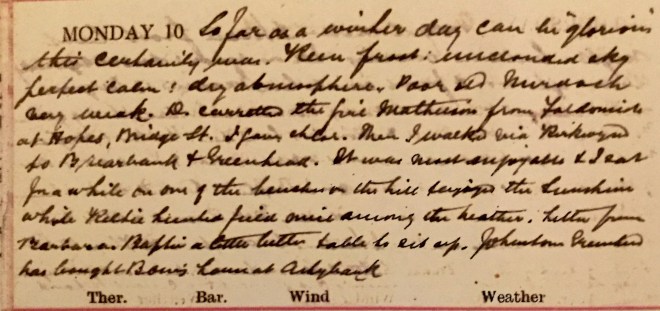 MONDAY 10 So far as a winter day can be "glorious"
this certainly was. Keen frost: unclouded sky
perfect calm: dry atmosphere. Poor old Murdoch
very weak. Dr carrotted the five Mathesons from
at Hopes, Bridge St. I gave cheer. Then I walked via Kirkwynd
to Briarbank & Greenhead. It was most enjoyable & I sat
for a while on one of the benches on the hill enjoying the sunshine
while Kelbie hunted field mice among the heather. Letter from
Barbara. Baffie a little better & able to sit up. Johnstone Greenhead
has bought Bow's house at Ashybank
Ther. Bar. Wind Weather